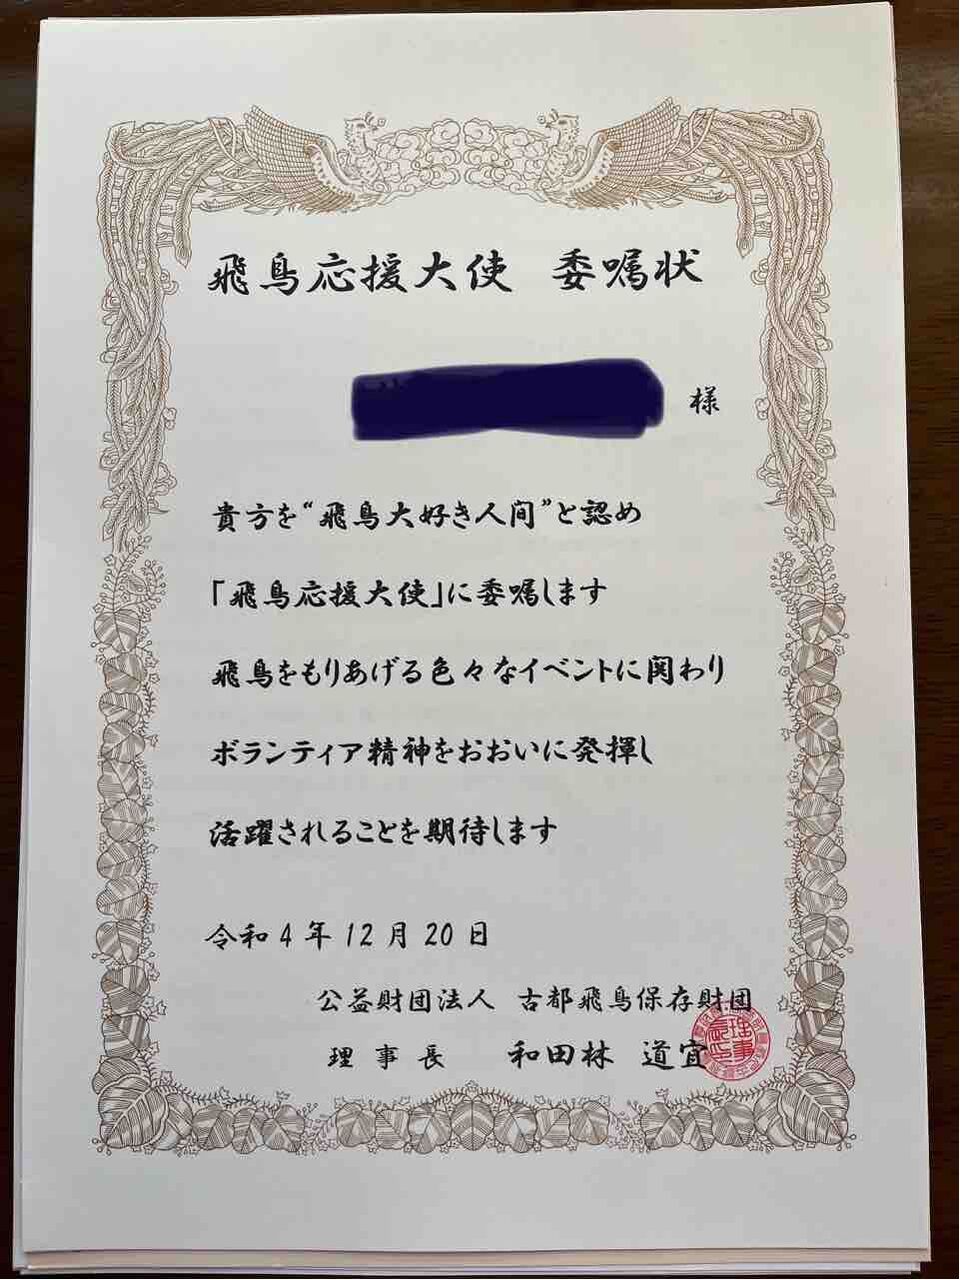 飛鳥応援大使 委嘱状
様
貴方を“飛鳥大好き人間”と認め
「飛鳥応援大使」に委嘱します
飛鳥をもりあげる色々なイベントに関わり
ボランティア精神をおおいに発揮し
活躍されることを期待します
令和4年12月20日
公益財団法人 古都飛鳥保存財団
理事長 和田林 道宜